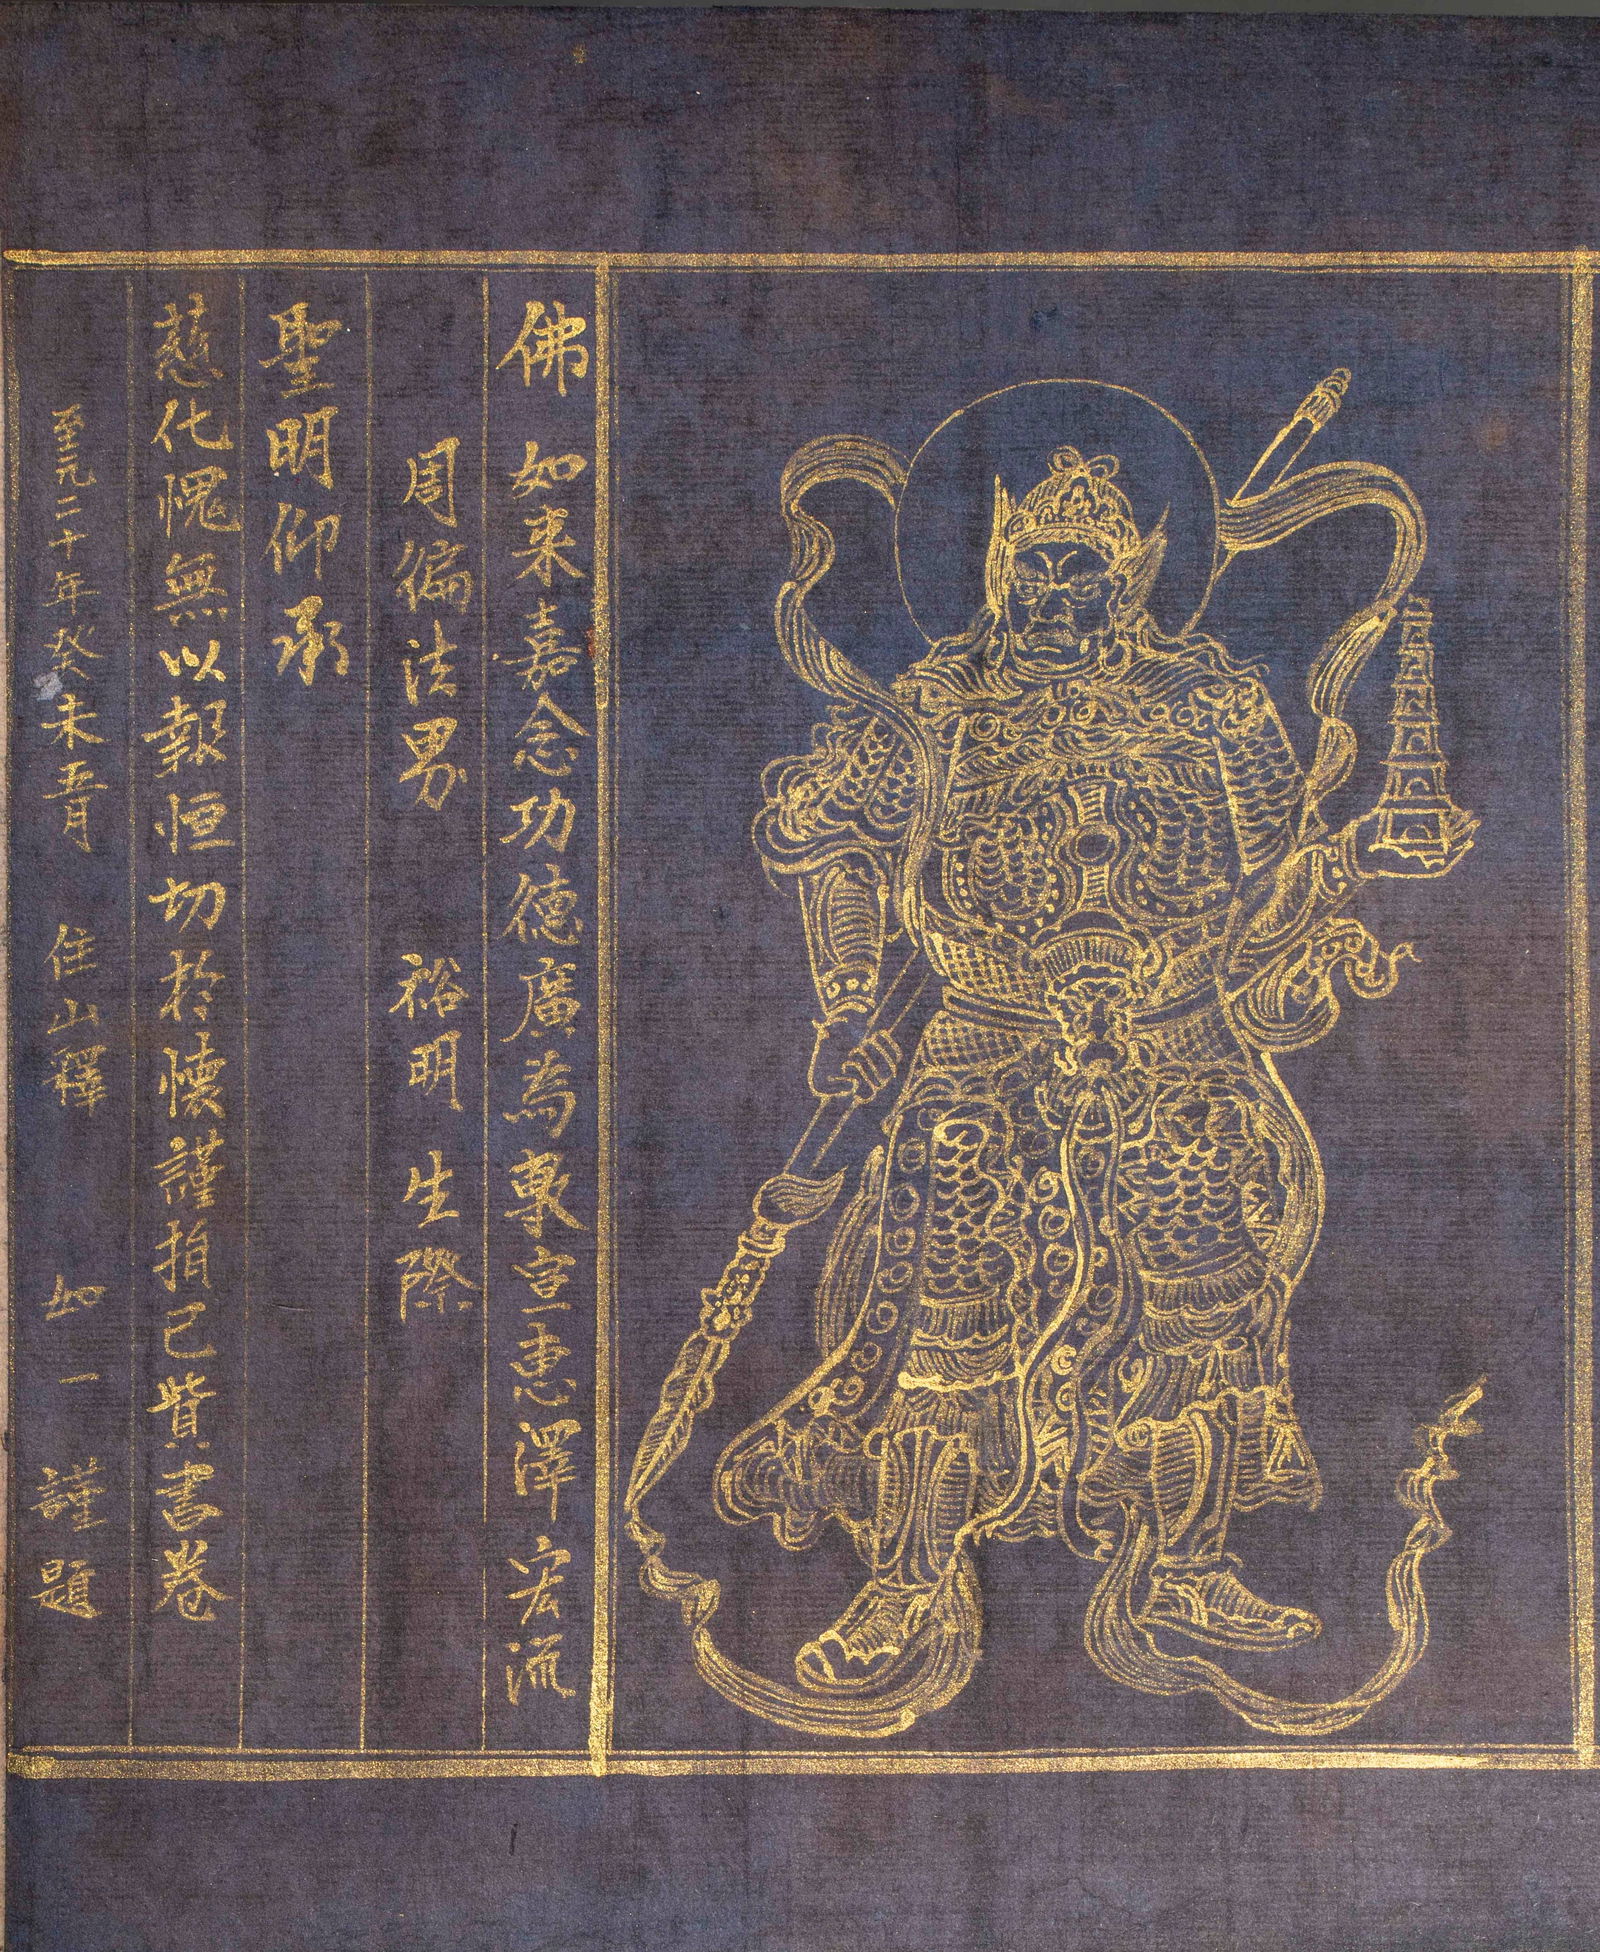 佛 如来嘉念功德廣為專宣恵澤宏流
周徧法界 裕明 生際
聖明仰承
慈化愧無以報恒切於懐謹捐己貲書卷
至元二十年癸未五月 住山釋 如一 謹題